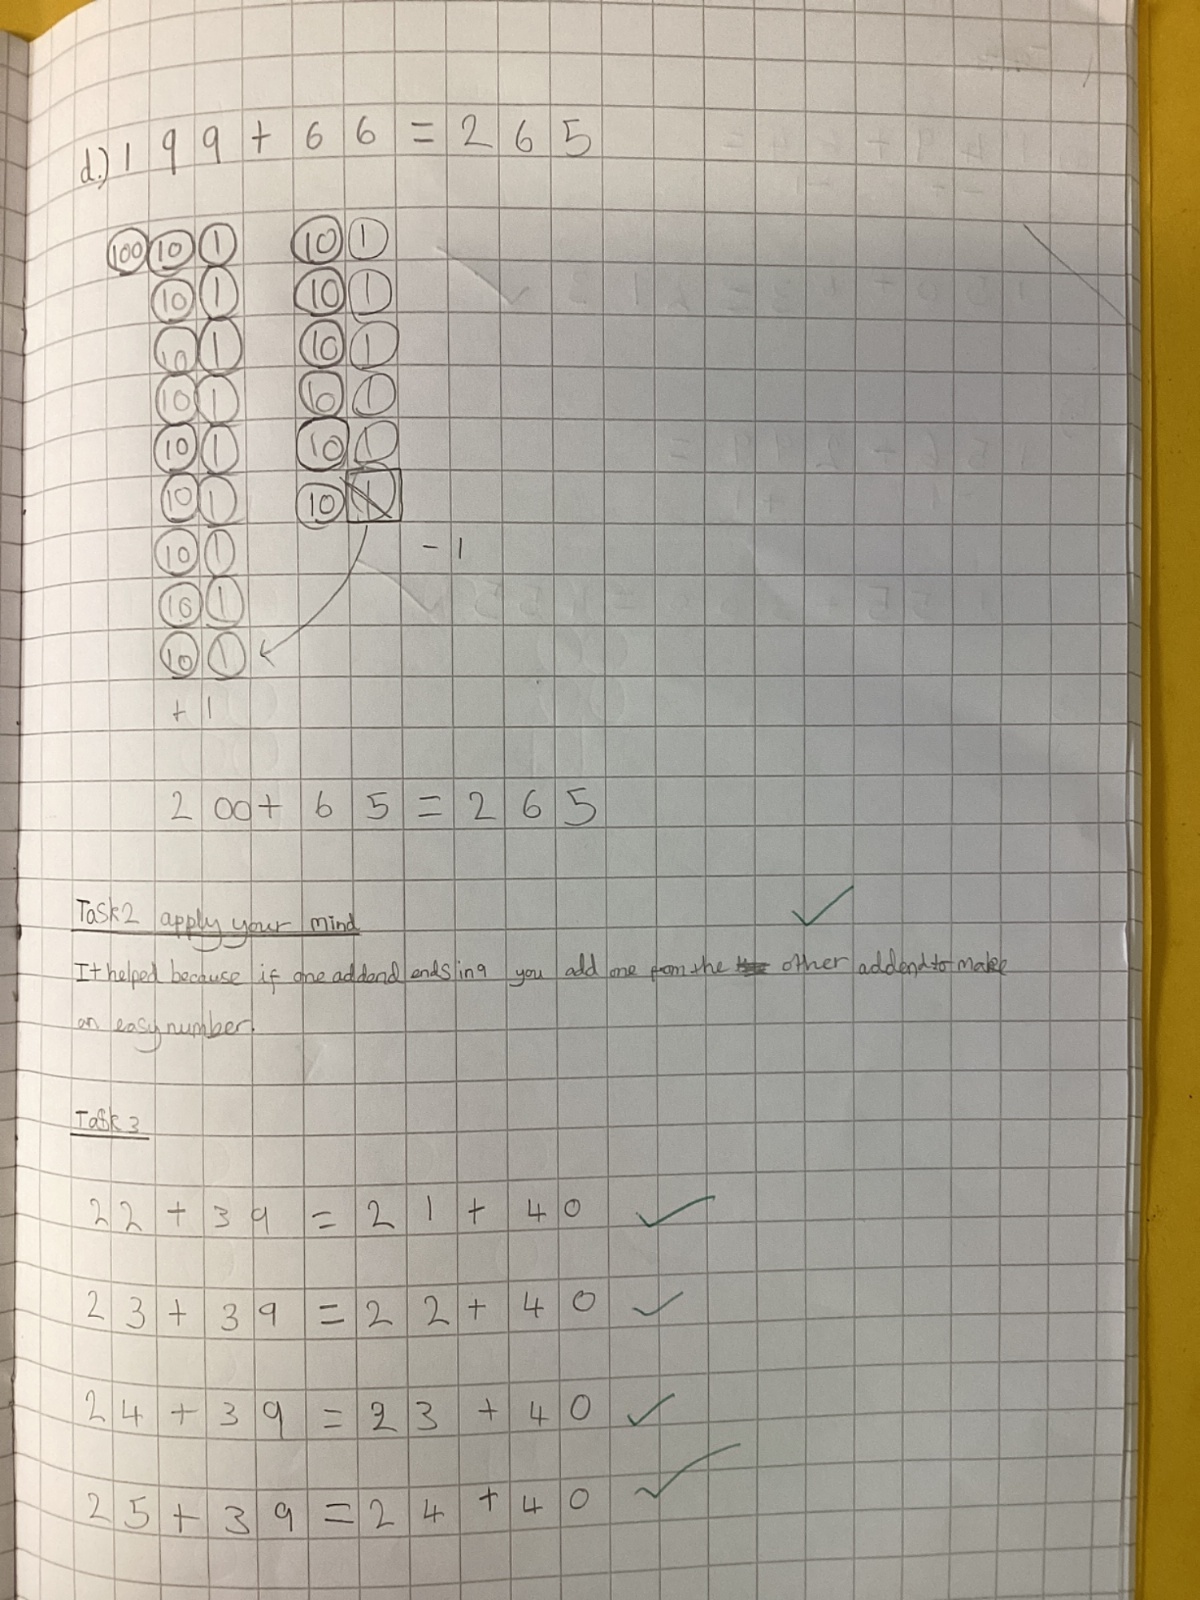 d.) 199 + 66 = 265
100 10 1 10 1
10 1 10 1
10 1 10 1
10 1 10 1
10 1 10 1
10 1 10 1
10 1 - 1
10 1
10 1
+ 1
200 + 65 = 265
Task2 apply your mind
It helped because if one addend ends in 9 you add one from the other addend to make
an easy number.
Task 3
22 + 39 = 21 + 40
23 + 39 = 22 + 40
24 + 39 = 23 + 40
25 + 39 = 24 + 40